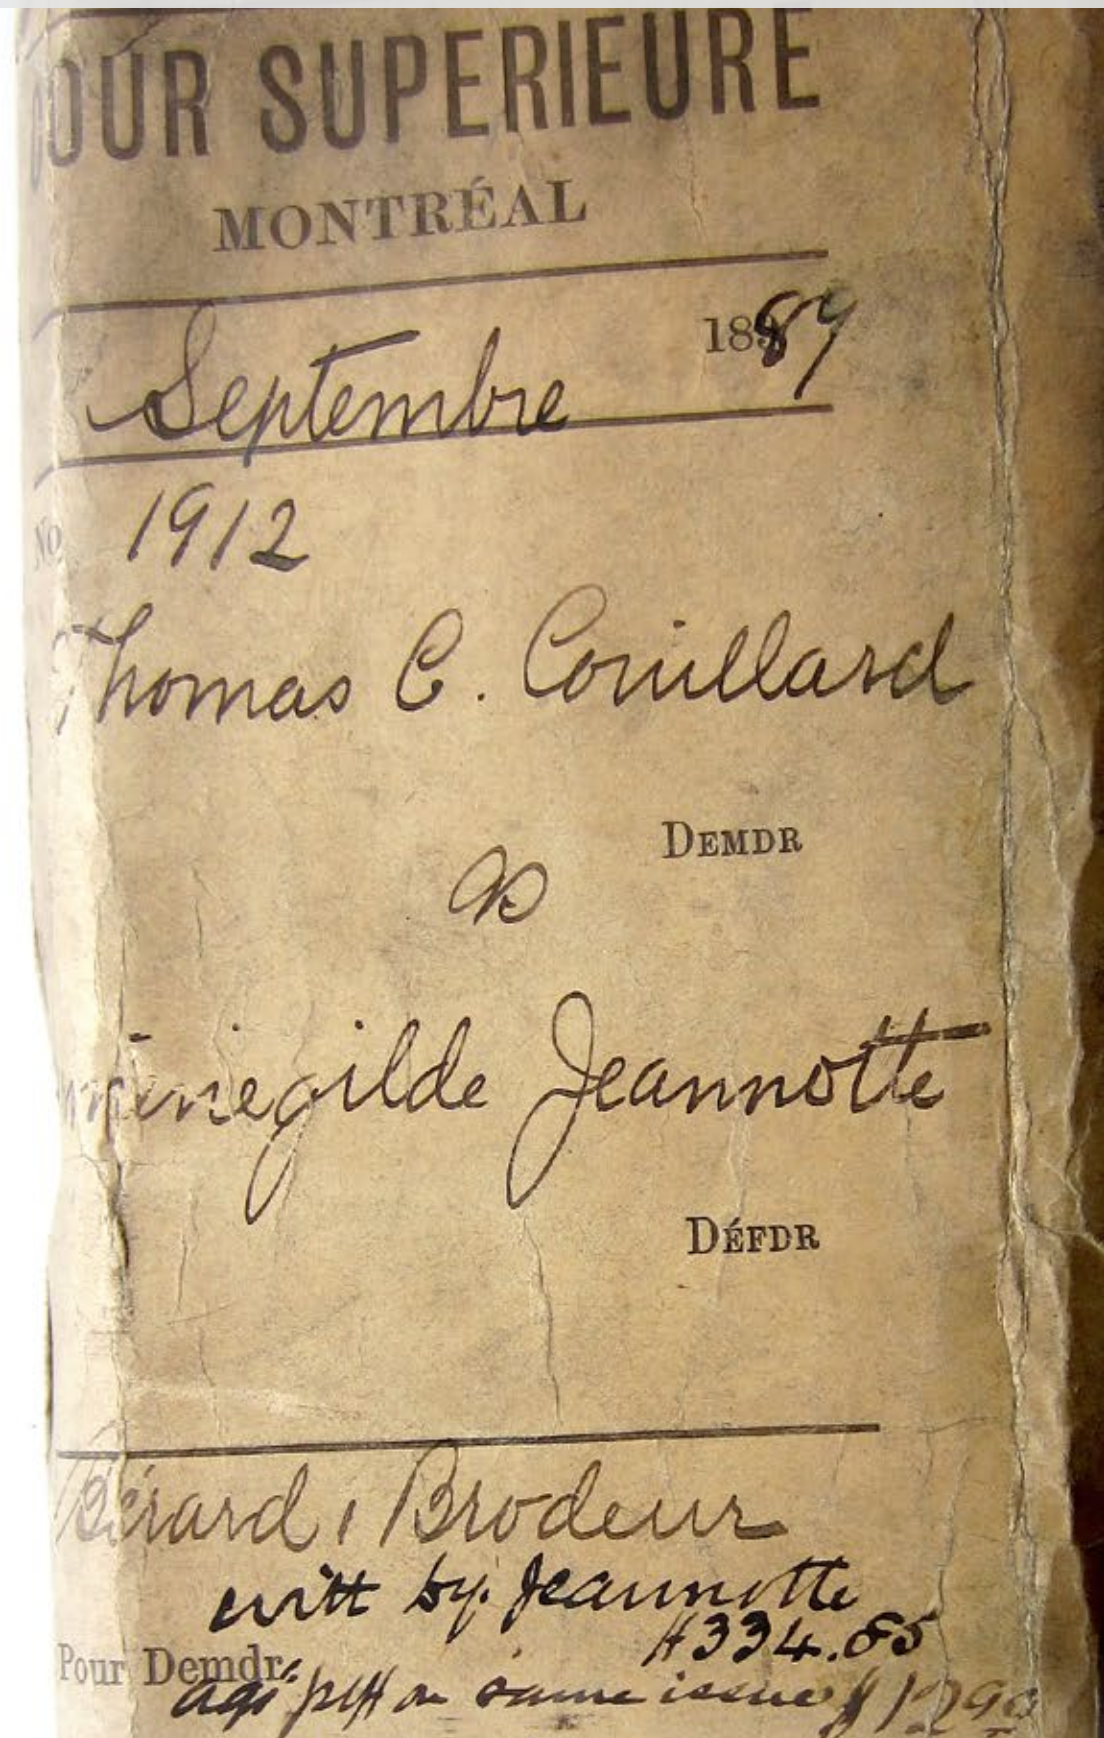 COUR SUPERIEURE
MONTRÉAL
Septembre 1889
No 1912
Thomas C. Couillard
DEMDR
vs
menegilde Jeannotte
DÉFDR
Bérard & Brodeur
witt by Jeannotte
$334.85
Pour Demdr.
agst plff on same issue $